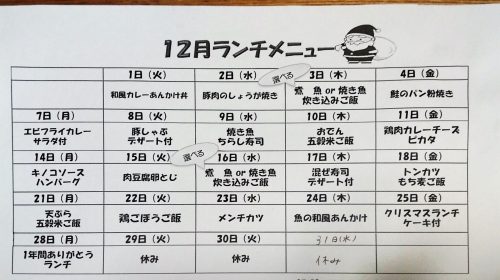 12月ランチメニュー
1日（火） 2日（水） 選べる 3日（木） 4日（金）
和風カレーあんかけ丼 豚肉のしょうが焼き 煮 魚 or 焼き魚 鮭のパン粉焼き
炊き込みご飯
7日（月） 8日（火） 9日（水） 10日（木） 11日（金）
エビフライカレー 豚しゃぶ 焼き魚 おでん 鶏肉カレーチーズ
サラダ付 デザート付 ちらし寿司 五穀米ご飯 ピカタ
14日（月） 15日（火） 選べる 16日（水） 17日（木） 18日（金）
キノコソース 肉豆腐卵とじ 煮 魚 or 焼き魚 混ぜ寿司 トンカツ
ハンバーグ 炊き込みご飯 デザート付 もち麦ご飯
21日（月） 22日（火） 23日（水） 24日（木） 25日（金）
天ぷら 鶏ごぼうご飯 メンチカツ 魚の和風あんかけ クリスマスランチ
五穀米ご飯 ケーキ付
28日（月） 29日（火） 30日（水） 31日(木)
1年間ありがとう 休み 休み 休み
ランチ